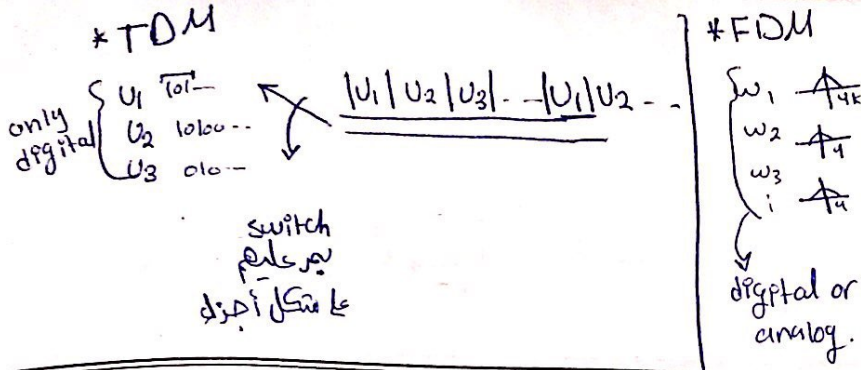 * TDM
only digital
U1 101--
U2 10100--
U3 010--
|U1|U2|U3|- --|U1|U2 - -
switch
بمر عليهم
ع شكل أجزاء
* FDM
w1 4k
w2 4
w3 4
digital or
analog.